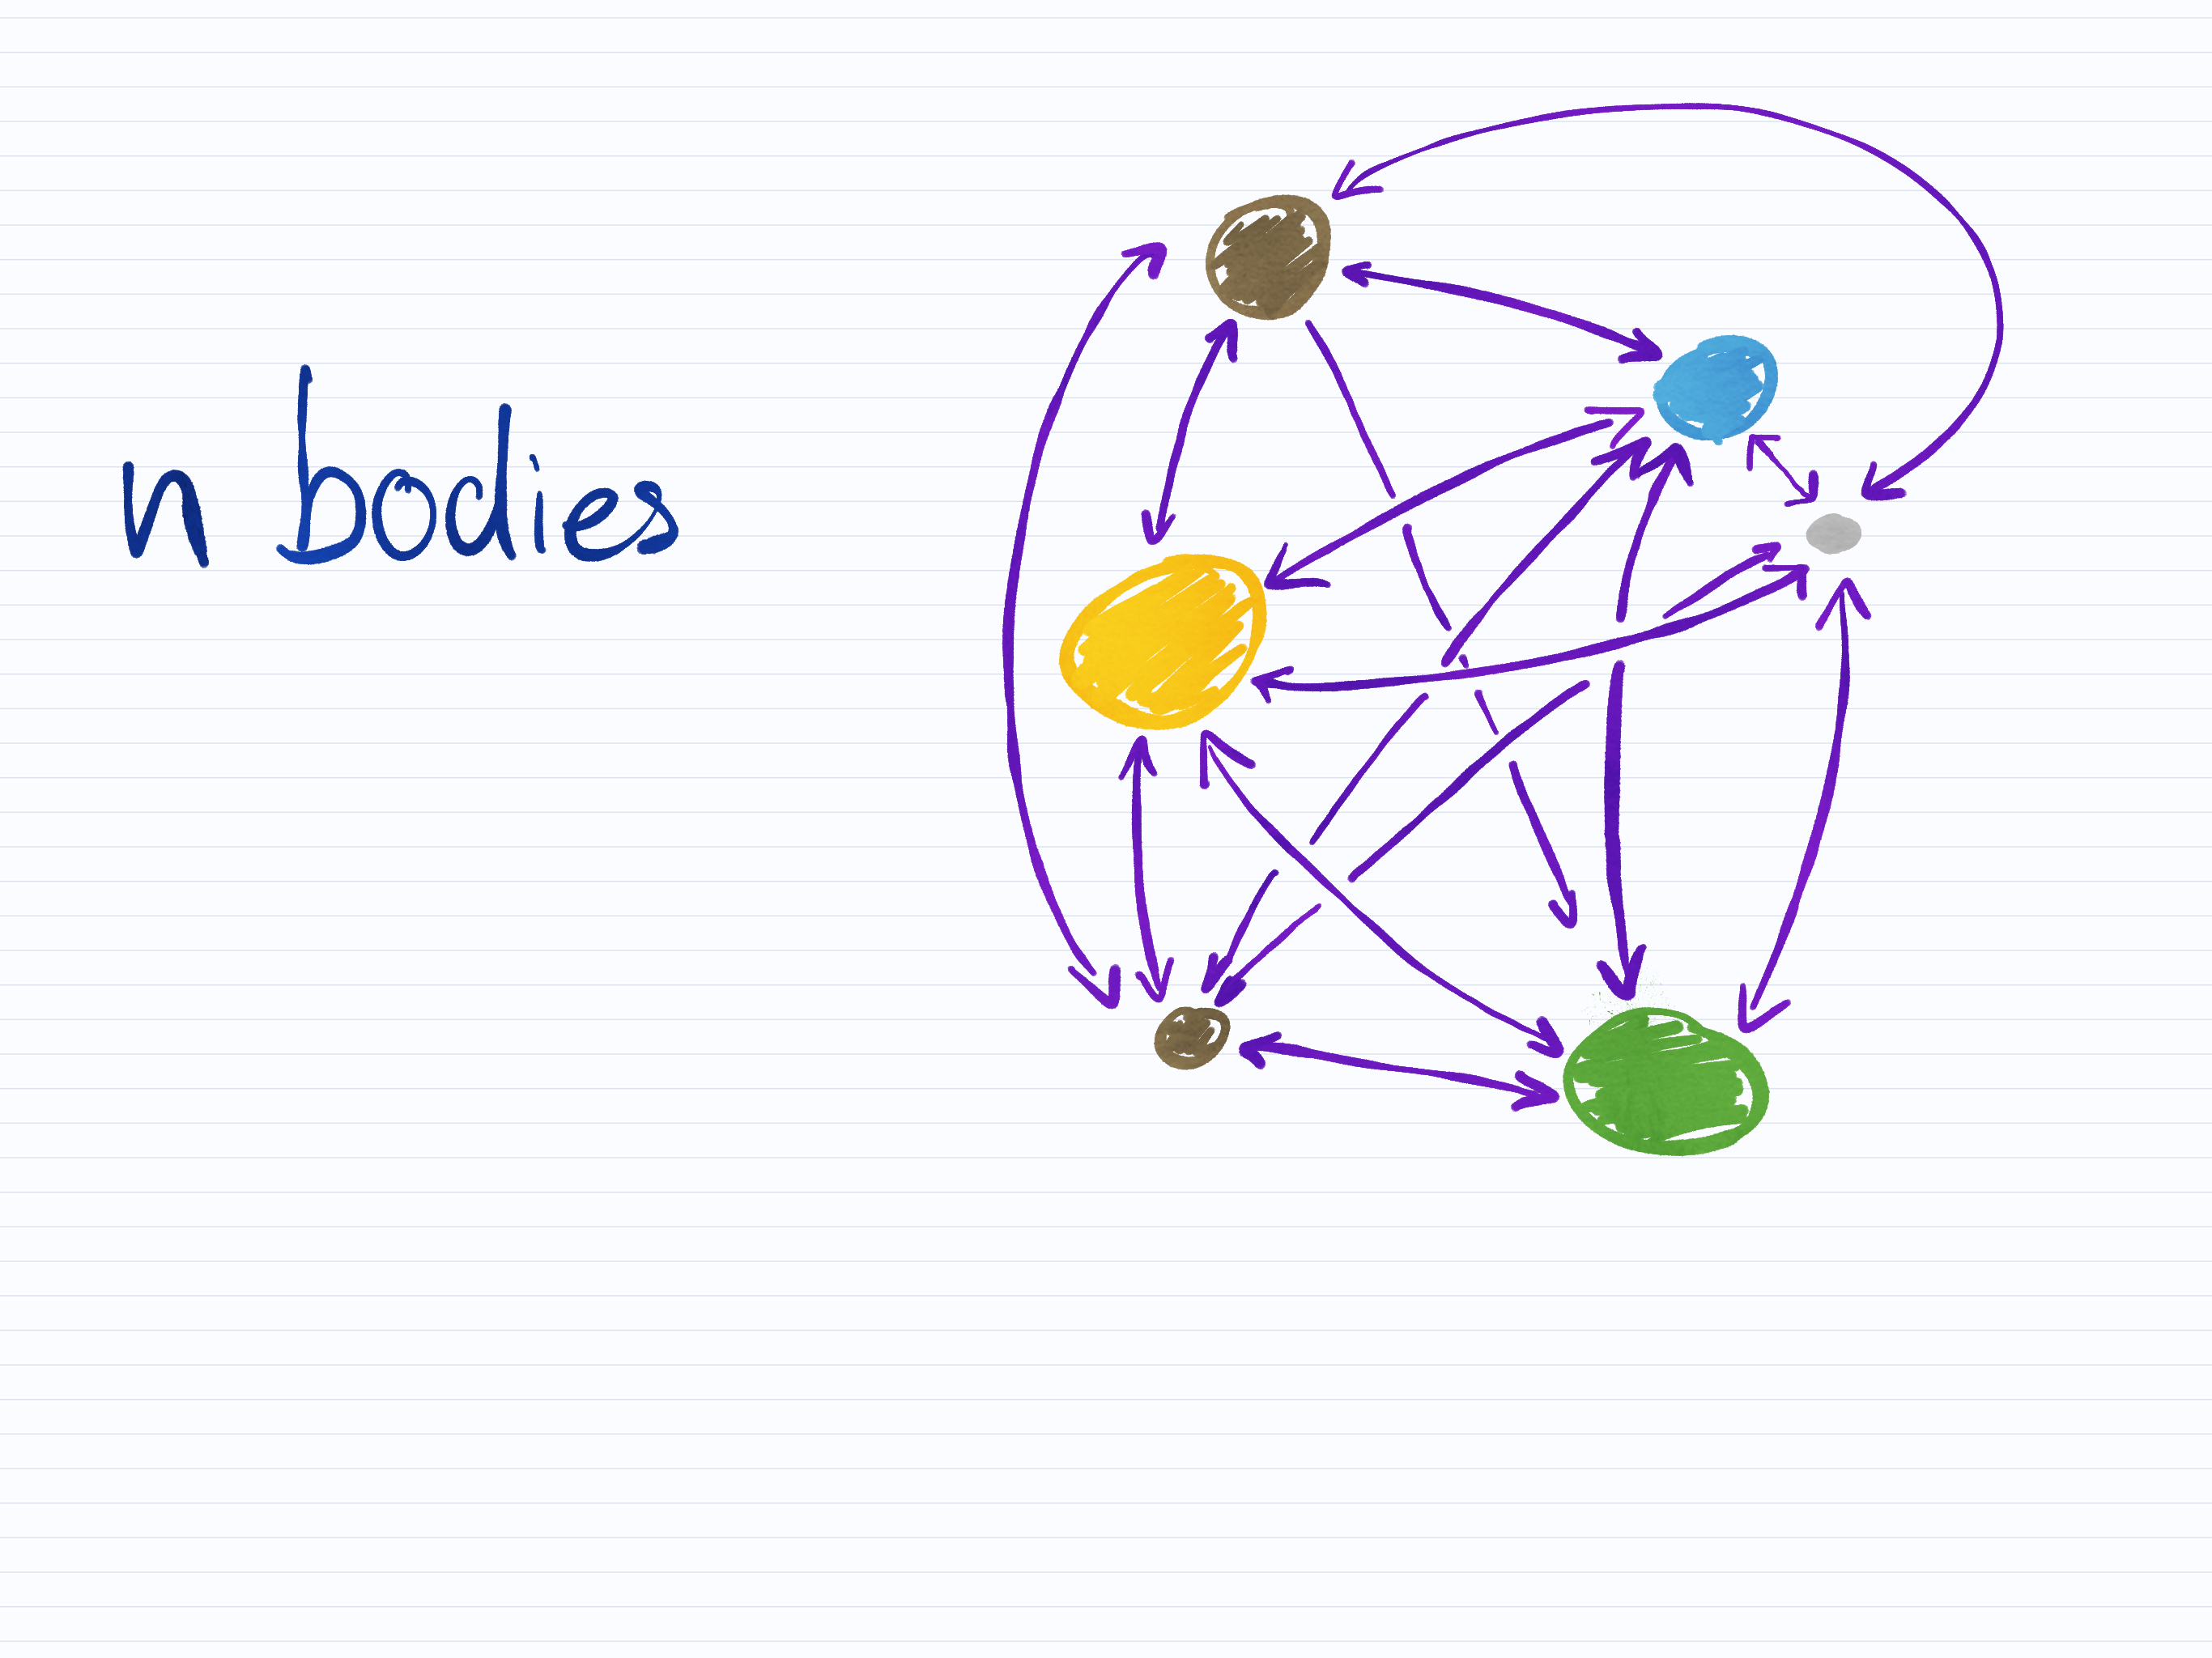 n bodies